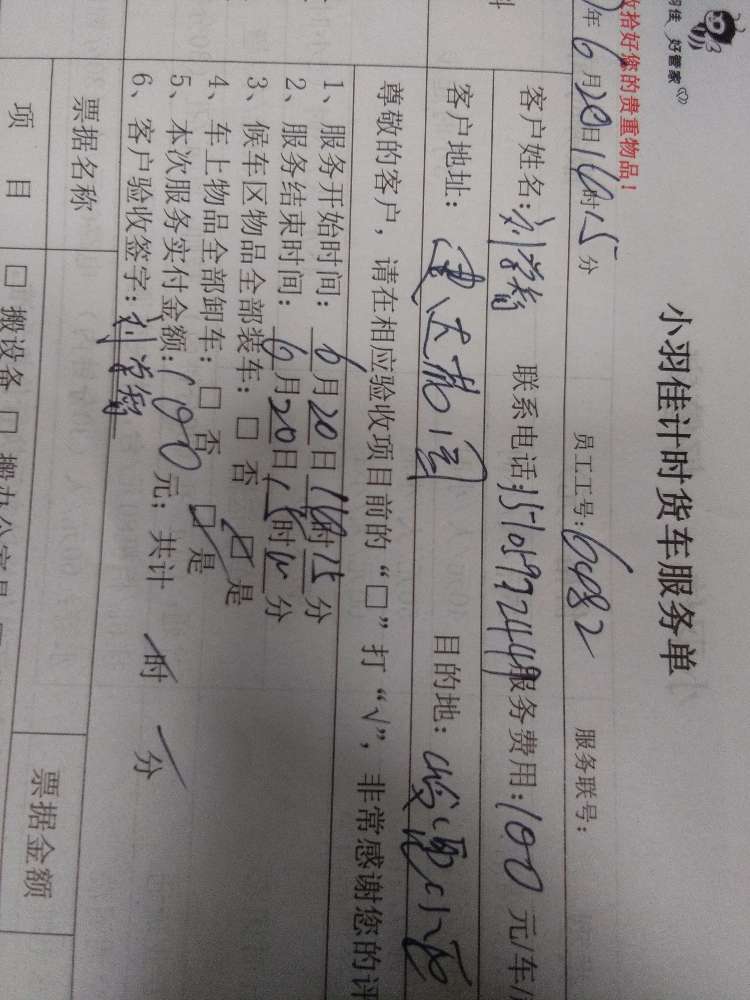 羽佳 好管家
收拾好您的贵重物品！
小羽佳计时货车服务单
年6月20日14时15分 员工工号：6482 服务联号：
客户姓名：刘学智 联系电话：15705992449 服务费用：100元/车/
客户地址： 目的地：
尊敬的客户，请在相应验收项目前的“□”打“√”，非常感谢您的评
1、服务开始时间：6月20日14时15分
2、服务结束时间：6月20日15时10分
3、候车区物品全部装车：□ 否 ☑ 是
4、车上物品全部卸车：□ 否 ☑ 是
5、本次服务实付金额：100元；共计 / 时 / 分
6、客户验收签字：刘学智
票据名称 票据金额
项 目 □ 搬设备 □ 搬办公家具